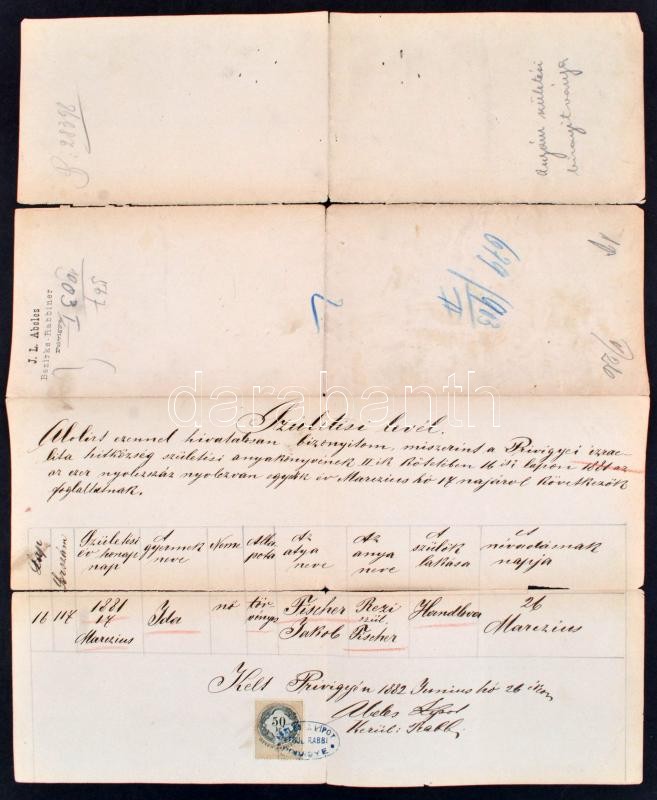 anyám születési
bizonyitványa
J. L. Abeles
Bezirks-Rabbiner
679/1903
darabanth
Születési levél.
Alolirt ezennel hivatalosan bizonyitom, miszerint a Privigyei izrae-
lita hitközség születési anyakönyvének II. ik kötetében 16 ik lapon 1881 az
az ezer nyolczszáz nyolczvan egyik év Marczius hó 17 napjáról következők
foglaltatnak.
Lap
Folyószám
Születési év honap nap
A gyermek neve
Neme
Álla pota
Az atya neve
Az anya neve
A szülők lakása
A névadásnak napja
16
117
1881 17 Marczius
Ida
nő
tör vényes
Fischer Jakob
Rezi szül. Fischer
Handlova
26 Marczius
Kelt Privigyén 1882 Junius hó 26 ikán
Abeles Lipot
Kerül: Rabbi
50